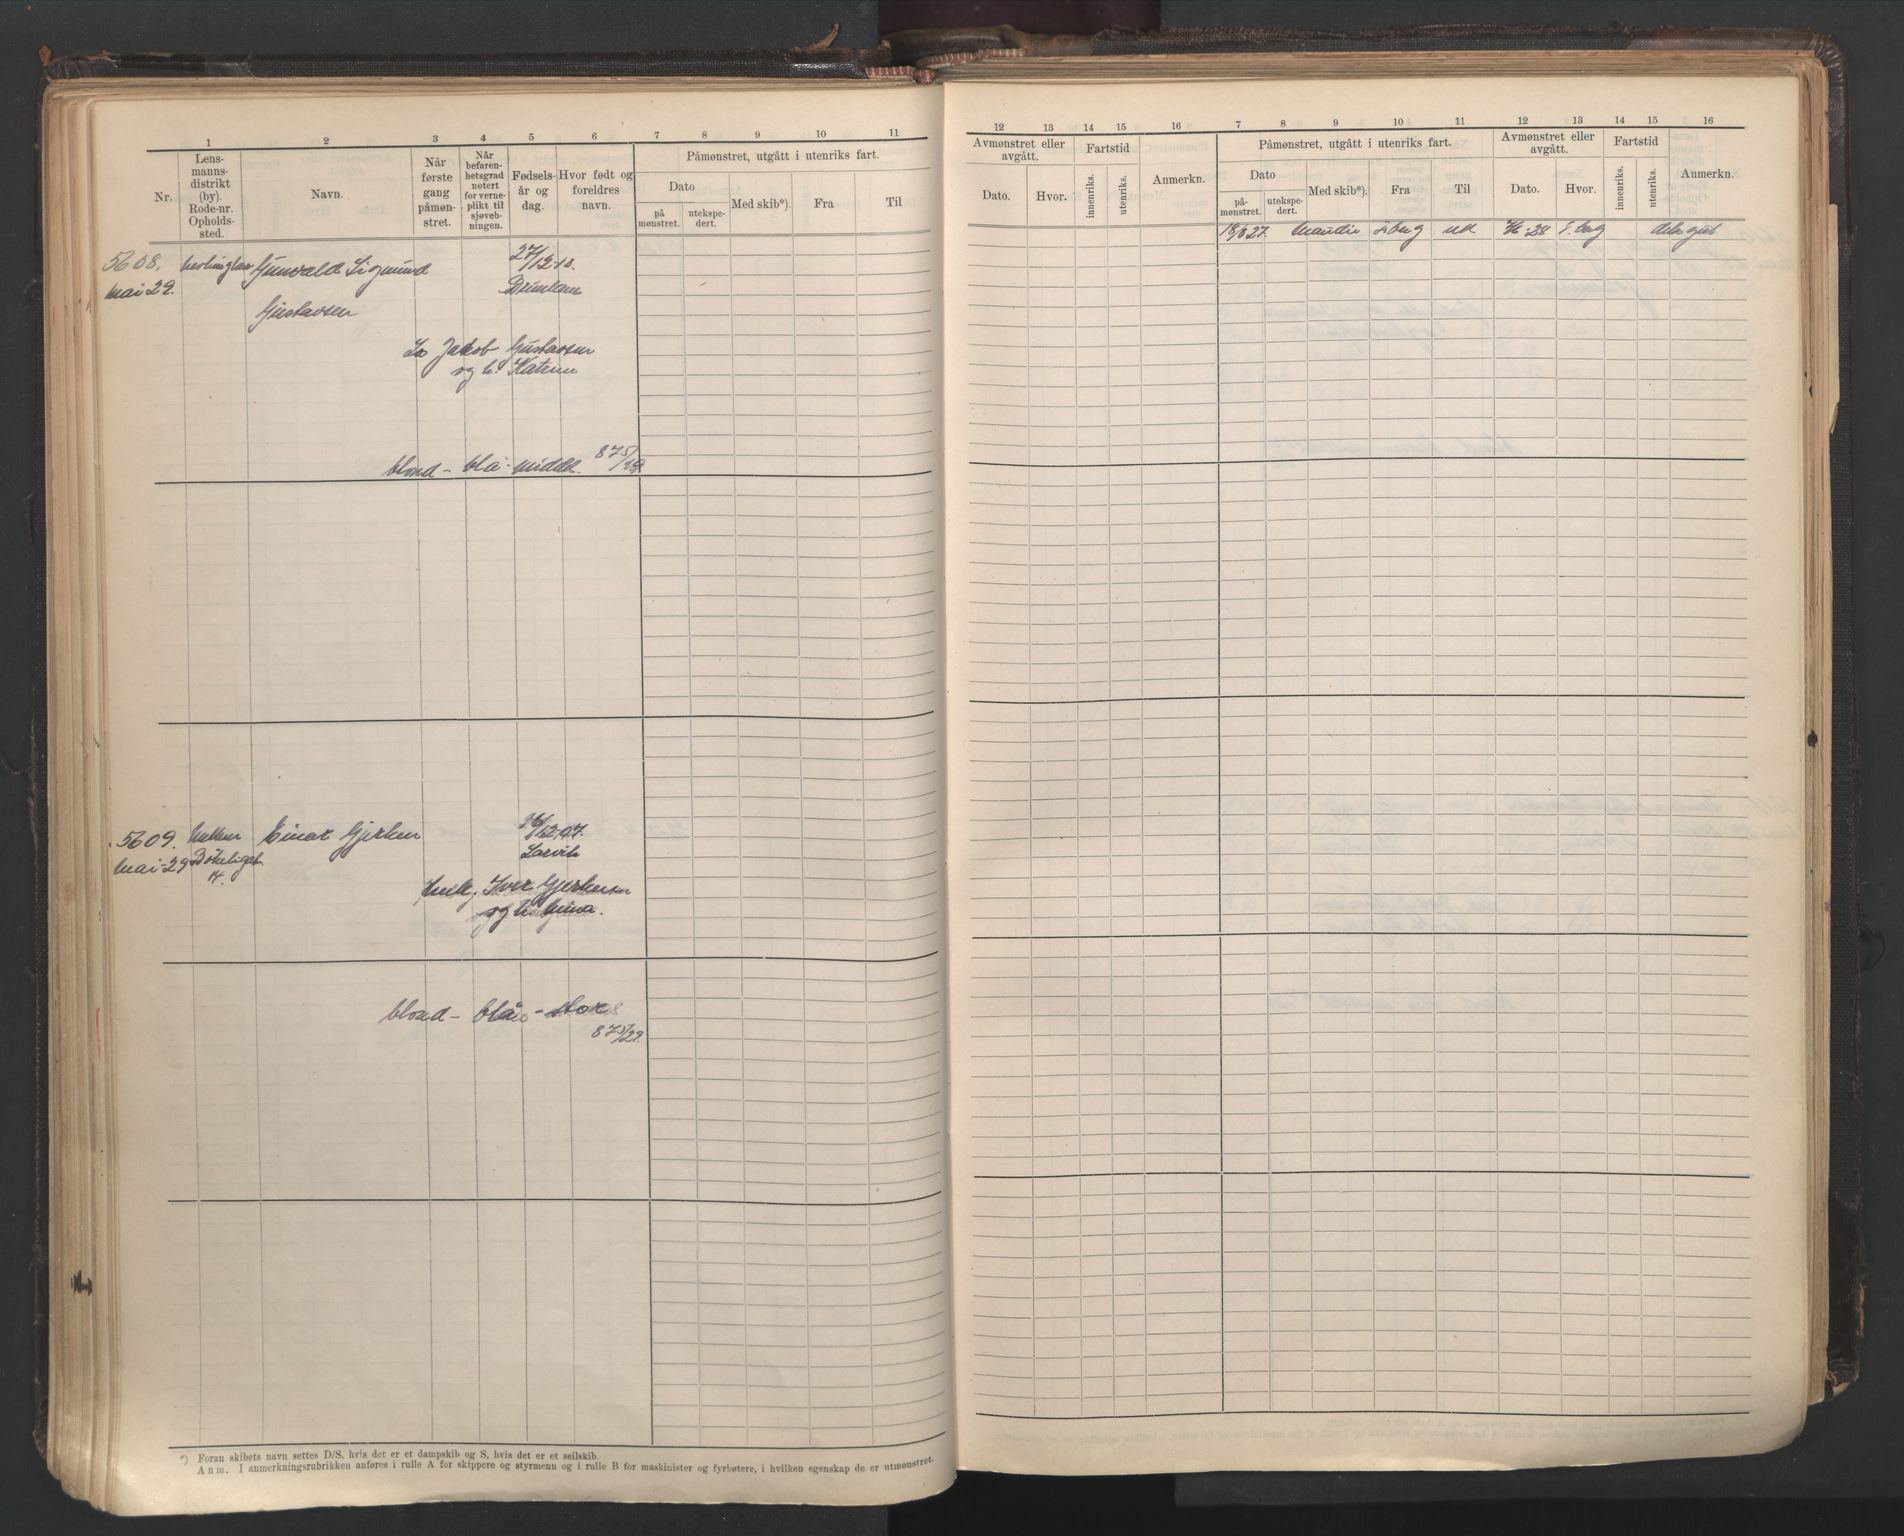 1 2 3 4 5 6 7 8 9 10 11
Nr.
Lens-
manns-
distrikt
(by).
Rode-nr.
Opholds-
sted.
Navn.
Når
første
gang
påmøn-
stret.
Når
befaren-
hetsgrad
notert
for verne-
plikt til
sjøveb-
ningen.
Fødsels-
år og
dag.
Hvor født og
foreldres
navn.
Påmønstret, utgått i utenriks fart.
Dato
på
mønstret.
utekspe-
dert.
Med skib*).
Fra
Til
5608.
Mai 29.
Gunvald Sigmund
Gustavsen
27/12-10.
Brunlanes
Jakob Gustavsen
og h. Katrine
blond - blå - middel. 875/29
5609.
Mai-29
14.
Einar Gjerken
Larvik
Iver Gjerkensen
og h.
blond - blå - stor
875/29.
*) Foran skibets navn settes D/S, hvis det er et dampskib og S, hvis det er et seilskib.
Anm. I anmerkningsrubrikken anføres i rulle A for skippere og styrmenn og i rulle B for maskinister og fyrbøtere, i hvilken egenskap de er utmønstret.
12 13 14 15 16 7 8 9 10 11 12 13 14 15 16
Avmønstret eller
avgått.
Dato.
Hvor.
Fartstid
innenriks.
utenriks.
Anmerkn.
Påmønstret, utgått i utenriks fart.
Dato
på-
mønstret.
utekspe-
dert.
Med skib*).
Fra
Til
Avmønstret eller
avgått.
Dato.
Hvor.
Fartstid
innenriks.
utenriks.
Anmerkn.
18/8 27. Maudie S.berg ud -28 S.berg dæksgut